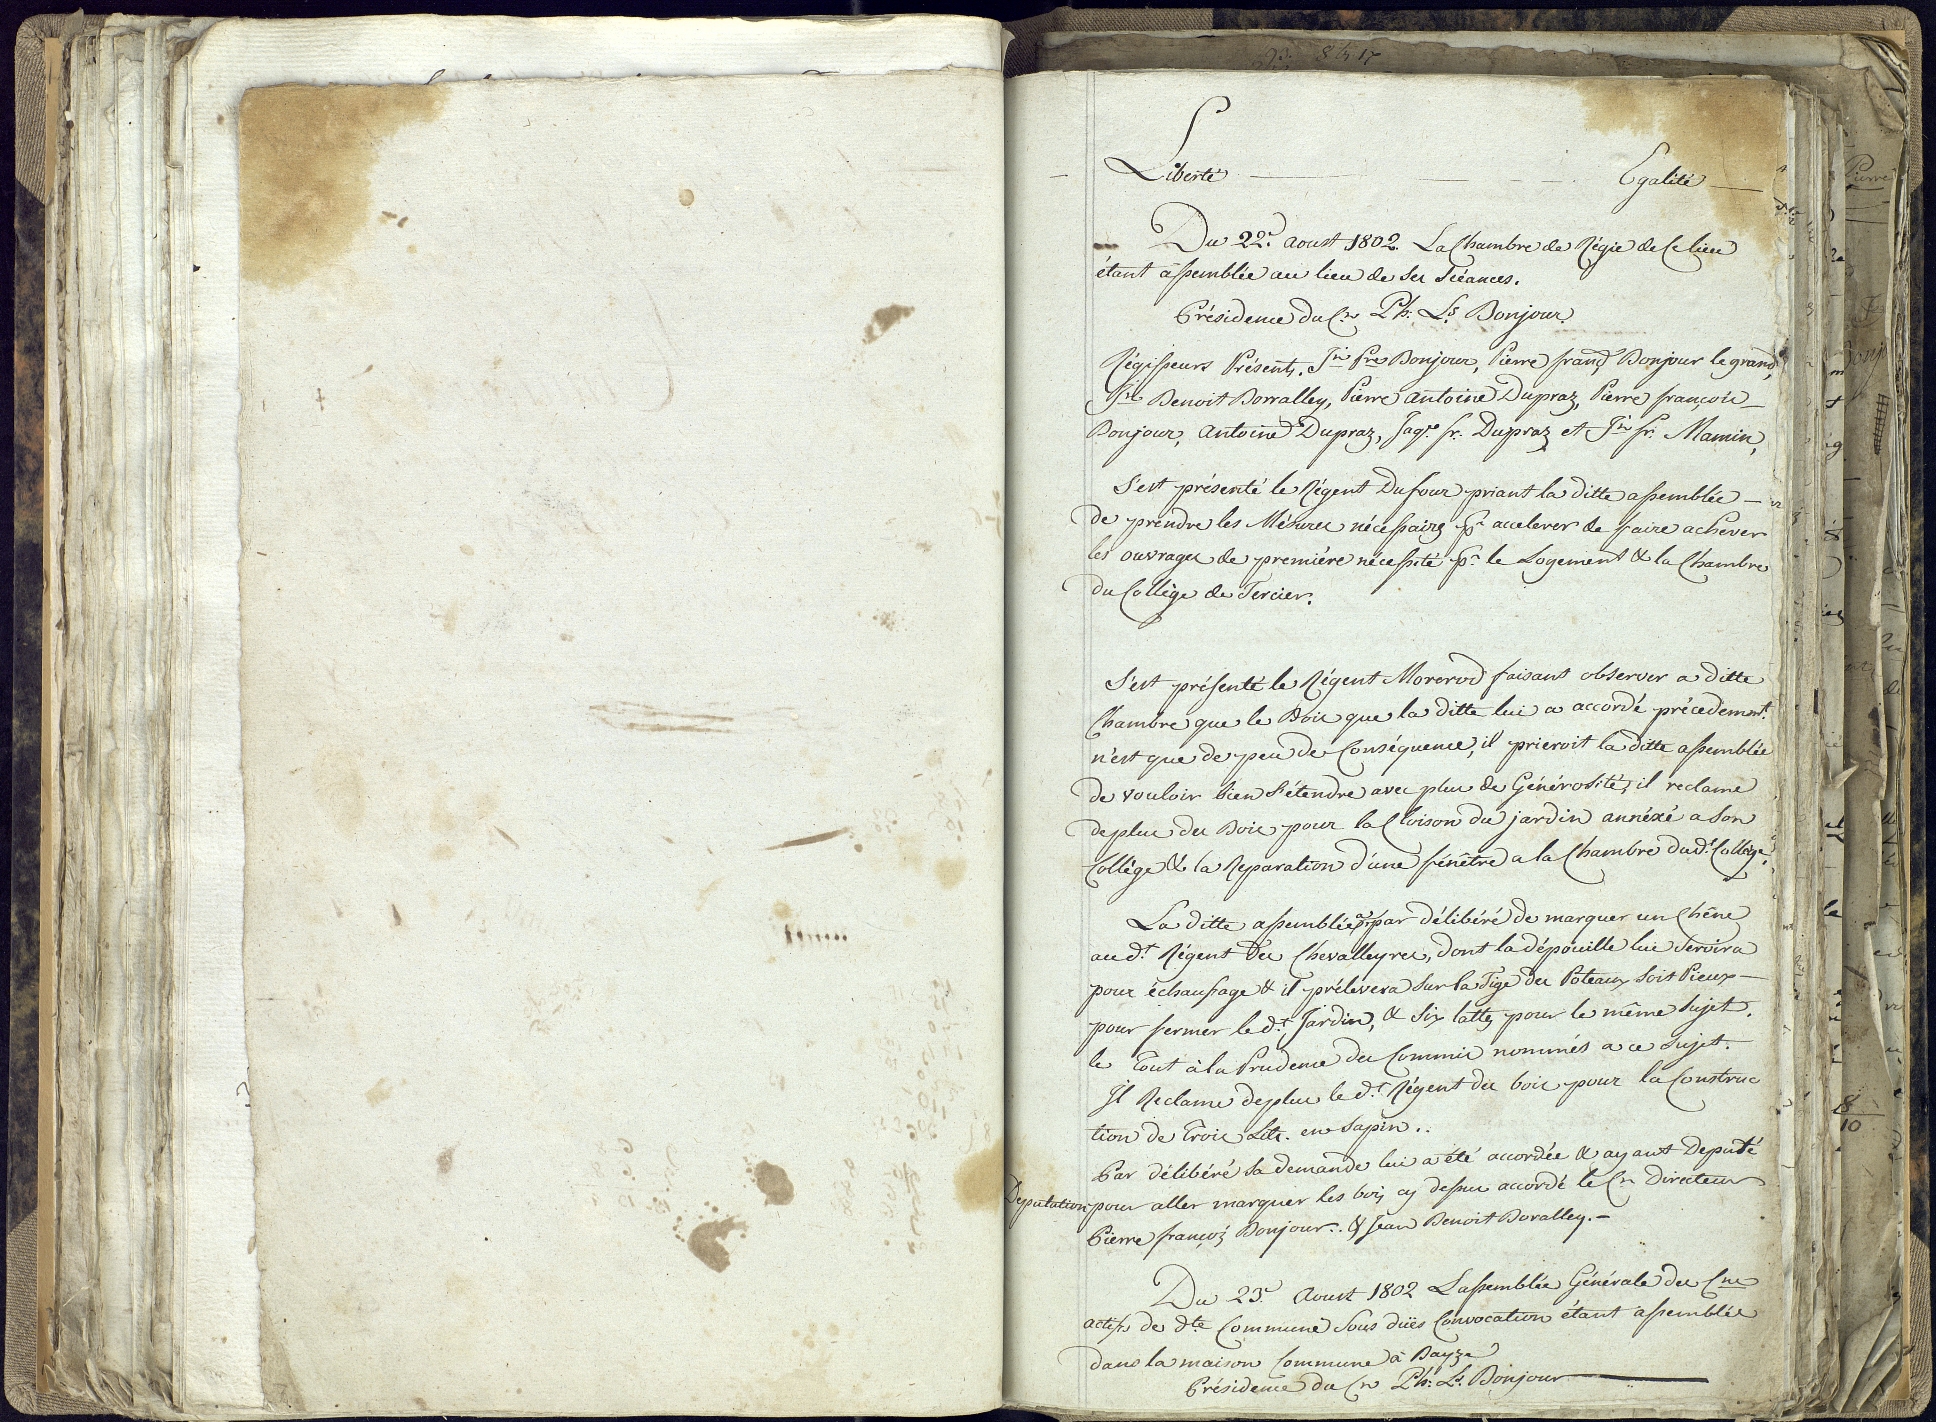 Liberté Egalité
Du 22e. Aoust 1802. La Chambre de Régie de Ce lieu
étant assemblée au lieu de Ses Séances.
Présidence du Cn Ph: Ls Bonjour.
Régisseurs Présents. Jn Fre Bonjour, Pierre franç Bonjour le grand,
Jn Benoit Borralley, Pierre Antoine Dupraz, Pierre françois
Bonjour, Antoine Dupraz, Jaqe fr. Dupraz et Jn fr. Mamin,
S'est présenté le Régent Dufour priant la ditte assemblée
de prendre les Mésures nécessaires pr accelerer de faire achever
les ouvrages de première nécessité pr le Logement & la Chambre
du Collège de Tercier.
S'est présenté le Régent Morerod faisant observer a ditte
Chambre que le Bois que la ditte lui a accordé précedemt.
n'est que de peu de Conséquence, il prieroit la ditte assemblée
de vouloir bien S'étendre avec plus de Générosité, il reclame
deplus du Bois pour la Cloison du jardin annéxé a Son
Collège & la Reparation d'une fénêtre a la Chambre dud.t Collège.
La ditte assemblée a par délibéré de marquer un Chêne
au d.t Régent des Chevalleyres, dont la dépouille lui Servira
pour échaufage & il prélevera Sur la Tige des Poteaux Soit Pieux
pour fermer le d.t Jardin, & Six lattes pour le même Sujet.
le Tout à la Prudence des Commis nommés a ce Sujet.
Il Reclame deplus le d.t Régent du bois pour la Construc
tion de Trois Lits. en Sapin..
Par délibéré Sa demande lui a été accordée & ayant Deputé
Deputation pour aller marquer les bois cy dessus accordé le Cn Directeur
Pierre françois Bonjour.. & Jean Benoit Boralley.
Du 23e. Aoust 1802 L'assemblée Générale des Cne
actifs de dte Commune Sous düës Convocation étant assemblée
dans la maison Commune à Bayze
Présidence du Cn Ph: Ls. Bonjour